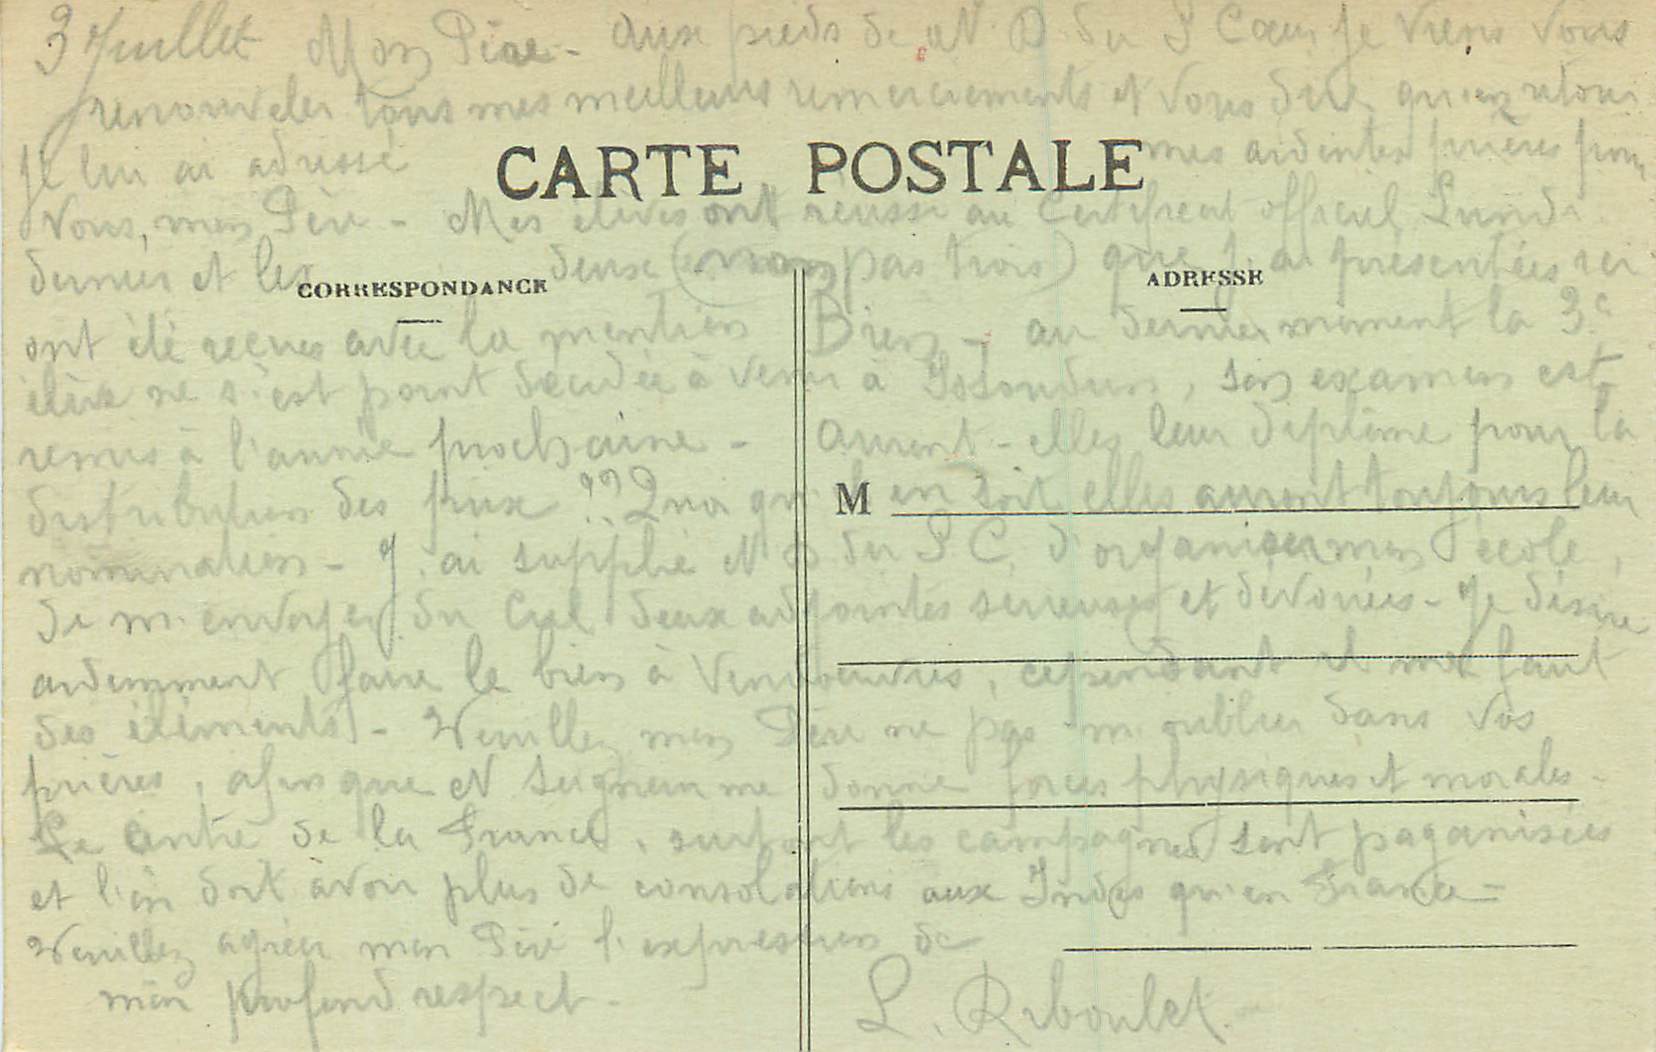 3 Juillet Mon Père - Aux pieds de N. D. du S Cœur, je viens vous
renouveler tous mes meilleurs remerciements et vous dire qu'en retour
je lui ai adressé mes ardentes prières pour
CARTE POSTALE
vous, mon Père - Mes élèves ont réussi au Certificat officiel Lundi
dernier et les deux (non pas trois) que j'ai présentées ici
CORRESPONDANCE
ADRESSE
ont été reçues avec la mention Bien - au dernier moment la 3e
élève ne s'est point décidée à venir à Issoudun, son examen est
remis à l'année prochaine - Auront-elles leur diplôme pour la
distribution des prix ?? Quoi qu'il en soit elles auront toujours leur
M
nomination - J'ai supplié N D du S C. d'organiser mon école,
de m'envoyer du Ciel deux adjointes sérieuses et dévouées - Je désire
ardemment faire le bien à Vendoeuvres, cependant il me faut
des éléments - Veuillez mon Père ne pas m'oublier dans vos
prières, afin que N Seigneur me donne forces physiques et morales -
Le centre de la France, surtout les campagnes sont paganisées
et l'on doit avoir plus de consolations aux Indes qu'en France -
Veuillez agréer mon Père l'expression de
mon profond respect -
L. Riboulet